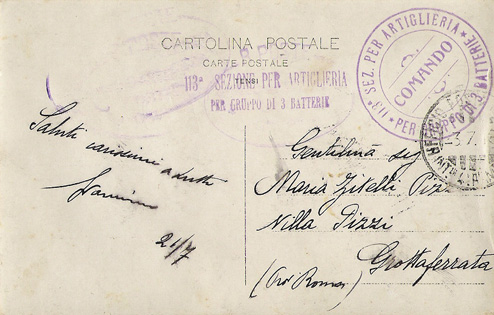 CARTOLINA POSTALE
CARTE POSTALE
113ª SEZIONE PER ARTIGLIERIA
PER GRUPPO DI 3 BATTERIE
113ª SEZ. PER ARTIGLIERIA
PER GRUPPO DI 3 BATTERIE
COMANDO
Saluti carissimi a tutti
21/7
Gentilma
Maria Zitelli
Villa Pizzi
Grottaferrata
(Prov Roma)